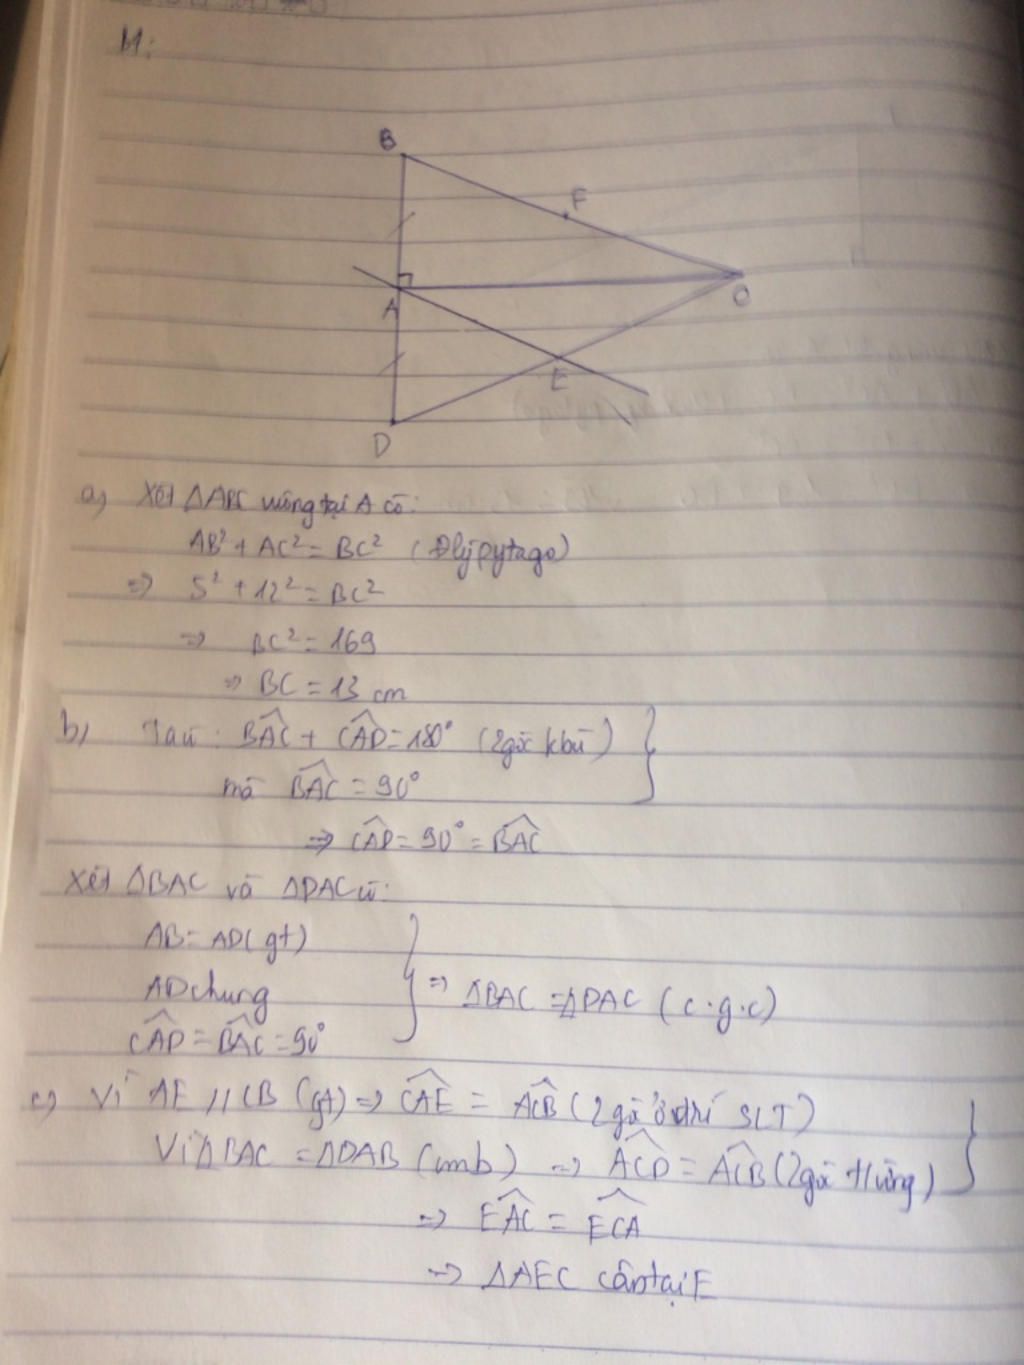 B
F
C
A
E
D
a) Xét ΔABC vuông tại A có:
AB² + AC² = BC² (Đlý pytago)
=> 5² + 12² = BC²
=> BC² = 169
=> BC = 13 cm
b) Ta có: BAC + CAD = 180° (2 góc kbù)
mà BAC = 90°
=> CAD = 90° = BAC
Xét ΔBAC và ΔDAC có:
AB = AD (gt)
AD chung
CAD = BAC = 90°
=> ΔBAC = ΔDAC (c.g.c)
c) Vì AE // CB (gt) => CAE = ACB (2 góc ở vị trí SLT)
Vì ΔBAC = ΔDAB (cmb) => ACD = ACB (2 góc t/ứng)
=> EAC = ECA
=> ΔAEC cân tại E